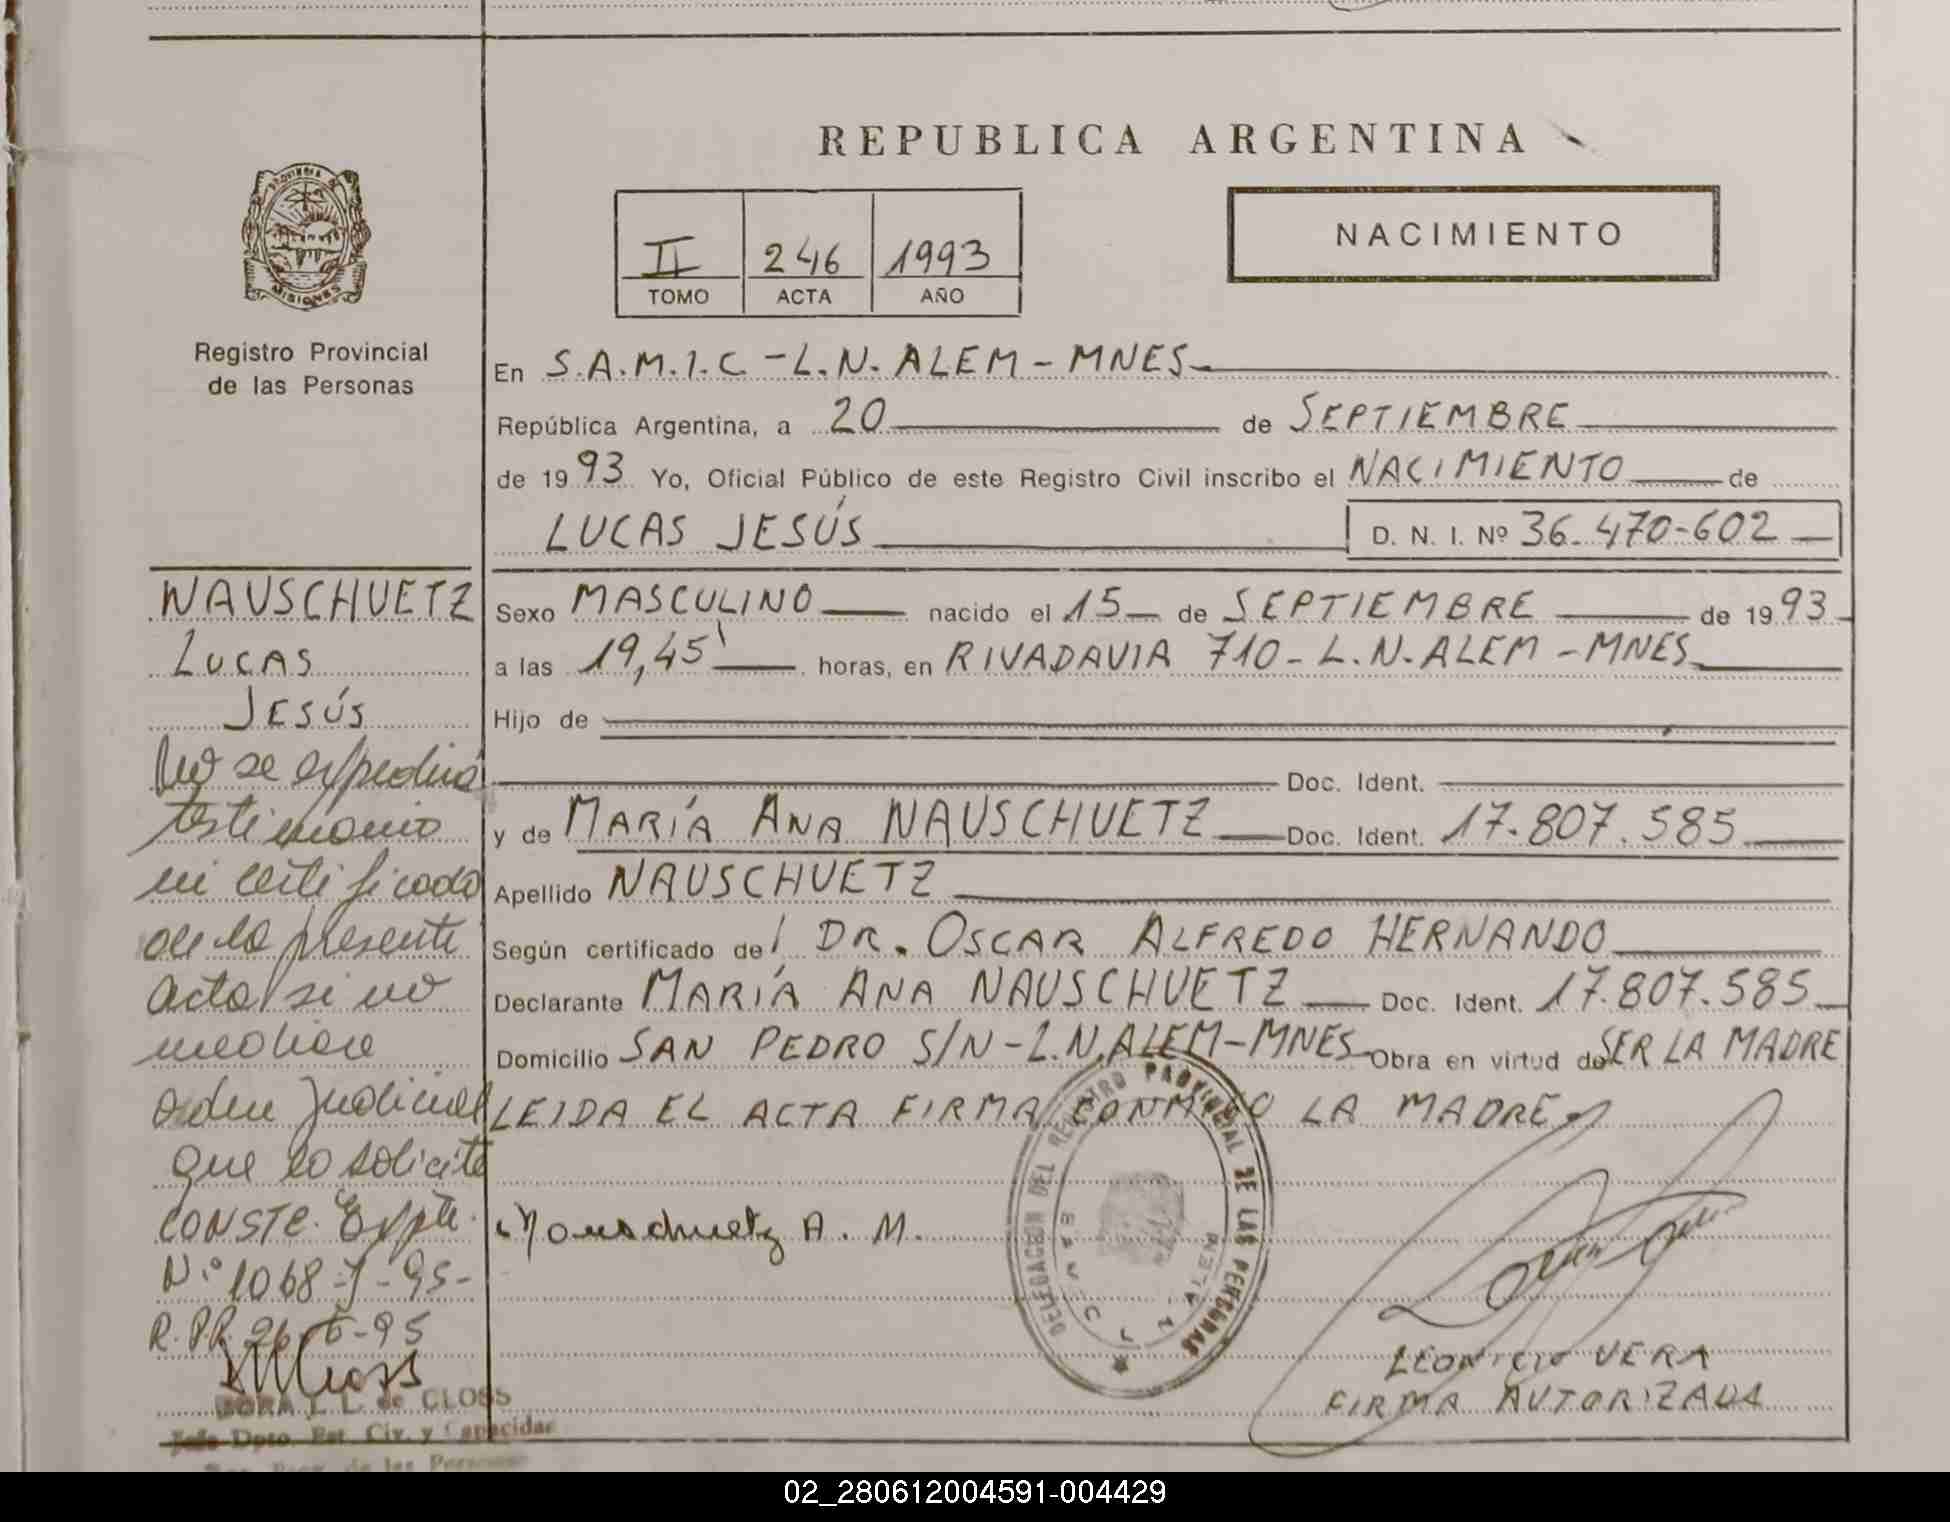 REPUBLICA ARGENTINA
PROVINCIA DE
MISIONES
Registro Provincial
de las Personas
II 246 1993
TOMO ACTA AÑO
NACIMIENTO
En S.A.M.I.C.-L.N.ALEM-MNES
República Argentina, a 20 de SEPTIEMBRE
de 1993 Yo, Oficial Público de este Registro Civil inscribo el NACIMIENTO de
LUCAS JESÚS D. N. I. Nº 36.470-602
Sexo MASCULINO nacido el 15 de SEPTIEMBRE de 1993
a las 19,45' horas, en RIVADAVIA 710-L.N.ALEM-MNES
Hijo de
Doc. Ident.
y de MARÍA ANA NAUSCHUETZ Doc. Ident. 17.807.585
Apellido NAUSCHUETZ
Según certificado del DR. OSCAR ALFREDO HERNANDO
Declarante MARÍA ANA NAUSCHUETZ Doc. Ident. 17.807.585
Domicilio SAN PEDRO S/N-L.N.ALEM-MNES Obra en virtud de SER LA MADRE
LEIDA EL ACTA FIRMA CONMIGO LA MADRE
Nauschuetz A. M.
DELEGACION DEL REGISTRO PROVINCIAL DE LAS PERSONAS
ALEM
LEONICIO VERA
FIRMA AUTORIZADA
NAUSCHUETZ
LUCAS
JESÚS
No se expedirá
testimonio
ni certificado
de la presente
acta si no
mediare
orden judicial
que lo solicite
CONSTE. Expte.
Nº 1068-J-95-
R.P.P. 26-6-95
L. de CLOSS
Jefe Dpto. Est. Civ. y Capacidad
Reg. Prov. de las Personas
02_280612004591-004429